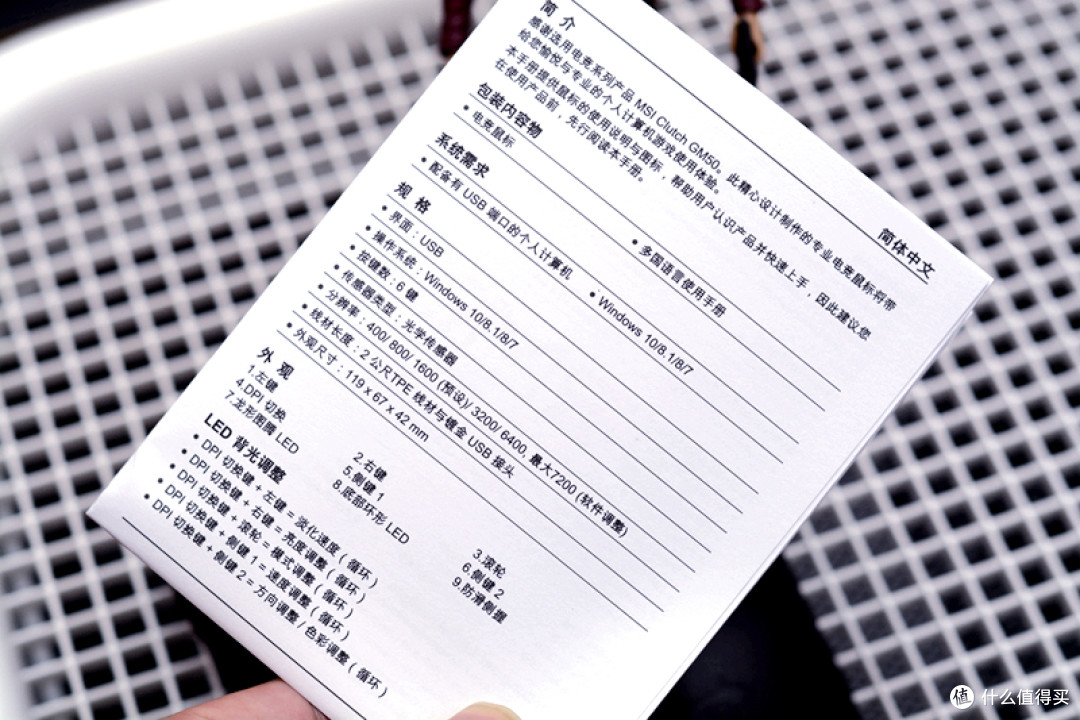 简体中文
简 介
感谢选用电竞系列产品 MSI Clutch GM50。此精心设计制作的专业电竞鼠标将带
给您愉悦与专业的个人计算机游戏使用体验。
本手册提供鼠标的使用说明与图标，帮助用户认识产品并快速上手，因此建议您
在使用产品前，先行阅读本手册。
包装内容物
• 电竞鼠标 • 多国语言使用手册
系统需求
• 配备有 USB 端口的个人计算机 • Windows 10/8.1/8/7
规 格
• 界面：USB
• 操作系统：Windows 10/8.1/8/7
• 按键数：6 键
• 传感器类型：光学传感器
• 分辨率：400/ 800/ 1600 (预设)/ 3200/ 6400, 最大7200 (软件调整)
• 线材长度：2 公尺TPE 线材与镀金 USB 接头
• 外观尺寸：119 x 67 x 42 mm
外 观
1.左键 2.右键 3.滚轮
4.DPI 切换 5.侧键 1 6.侧键 2
7.龙形图腾 LED 8.底部环形 LED 9.防滑侧握
LED 背光调整
• DPI 切换键 + 左键 = 淡化速度 ( 循环 )
• DPI 切换键 + 右键 = 亮度调整 ( 循环 )
• DPI 切换键 + 滚轮 = 模式调整 ( 循环 )
• DPI 切换键 + 侧键 1 = 速度调整 ( 循环 )
• DPI 切换键 + 侧键 2 = 方向调整 / 色彩调整 ( 循环 )
值 什么值得买